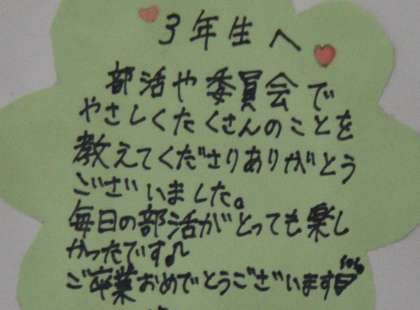 3年生へ
部活や委員会で
やさしくたくさんのことを
教えてくださりありがとう
ございました。
毎日の部活がとっても楽し
かったです♪
ご卒業おめでとうございます